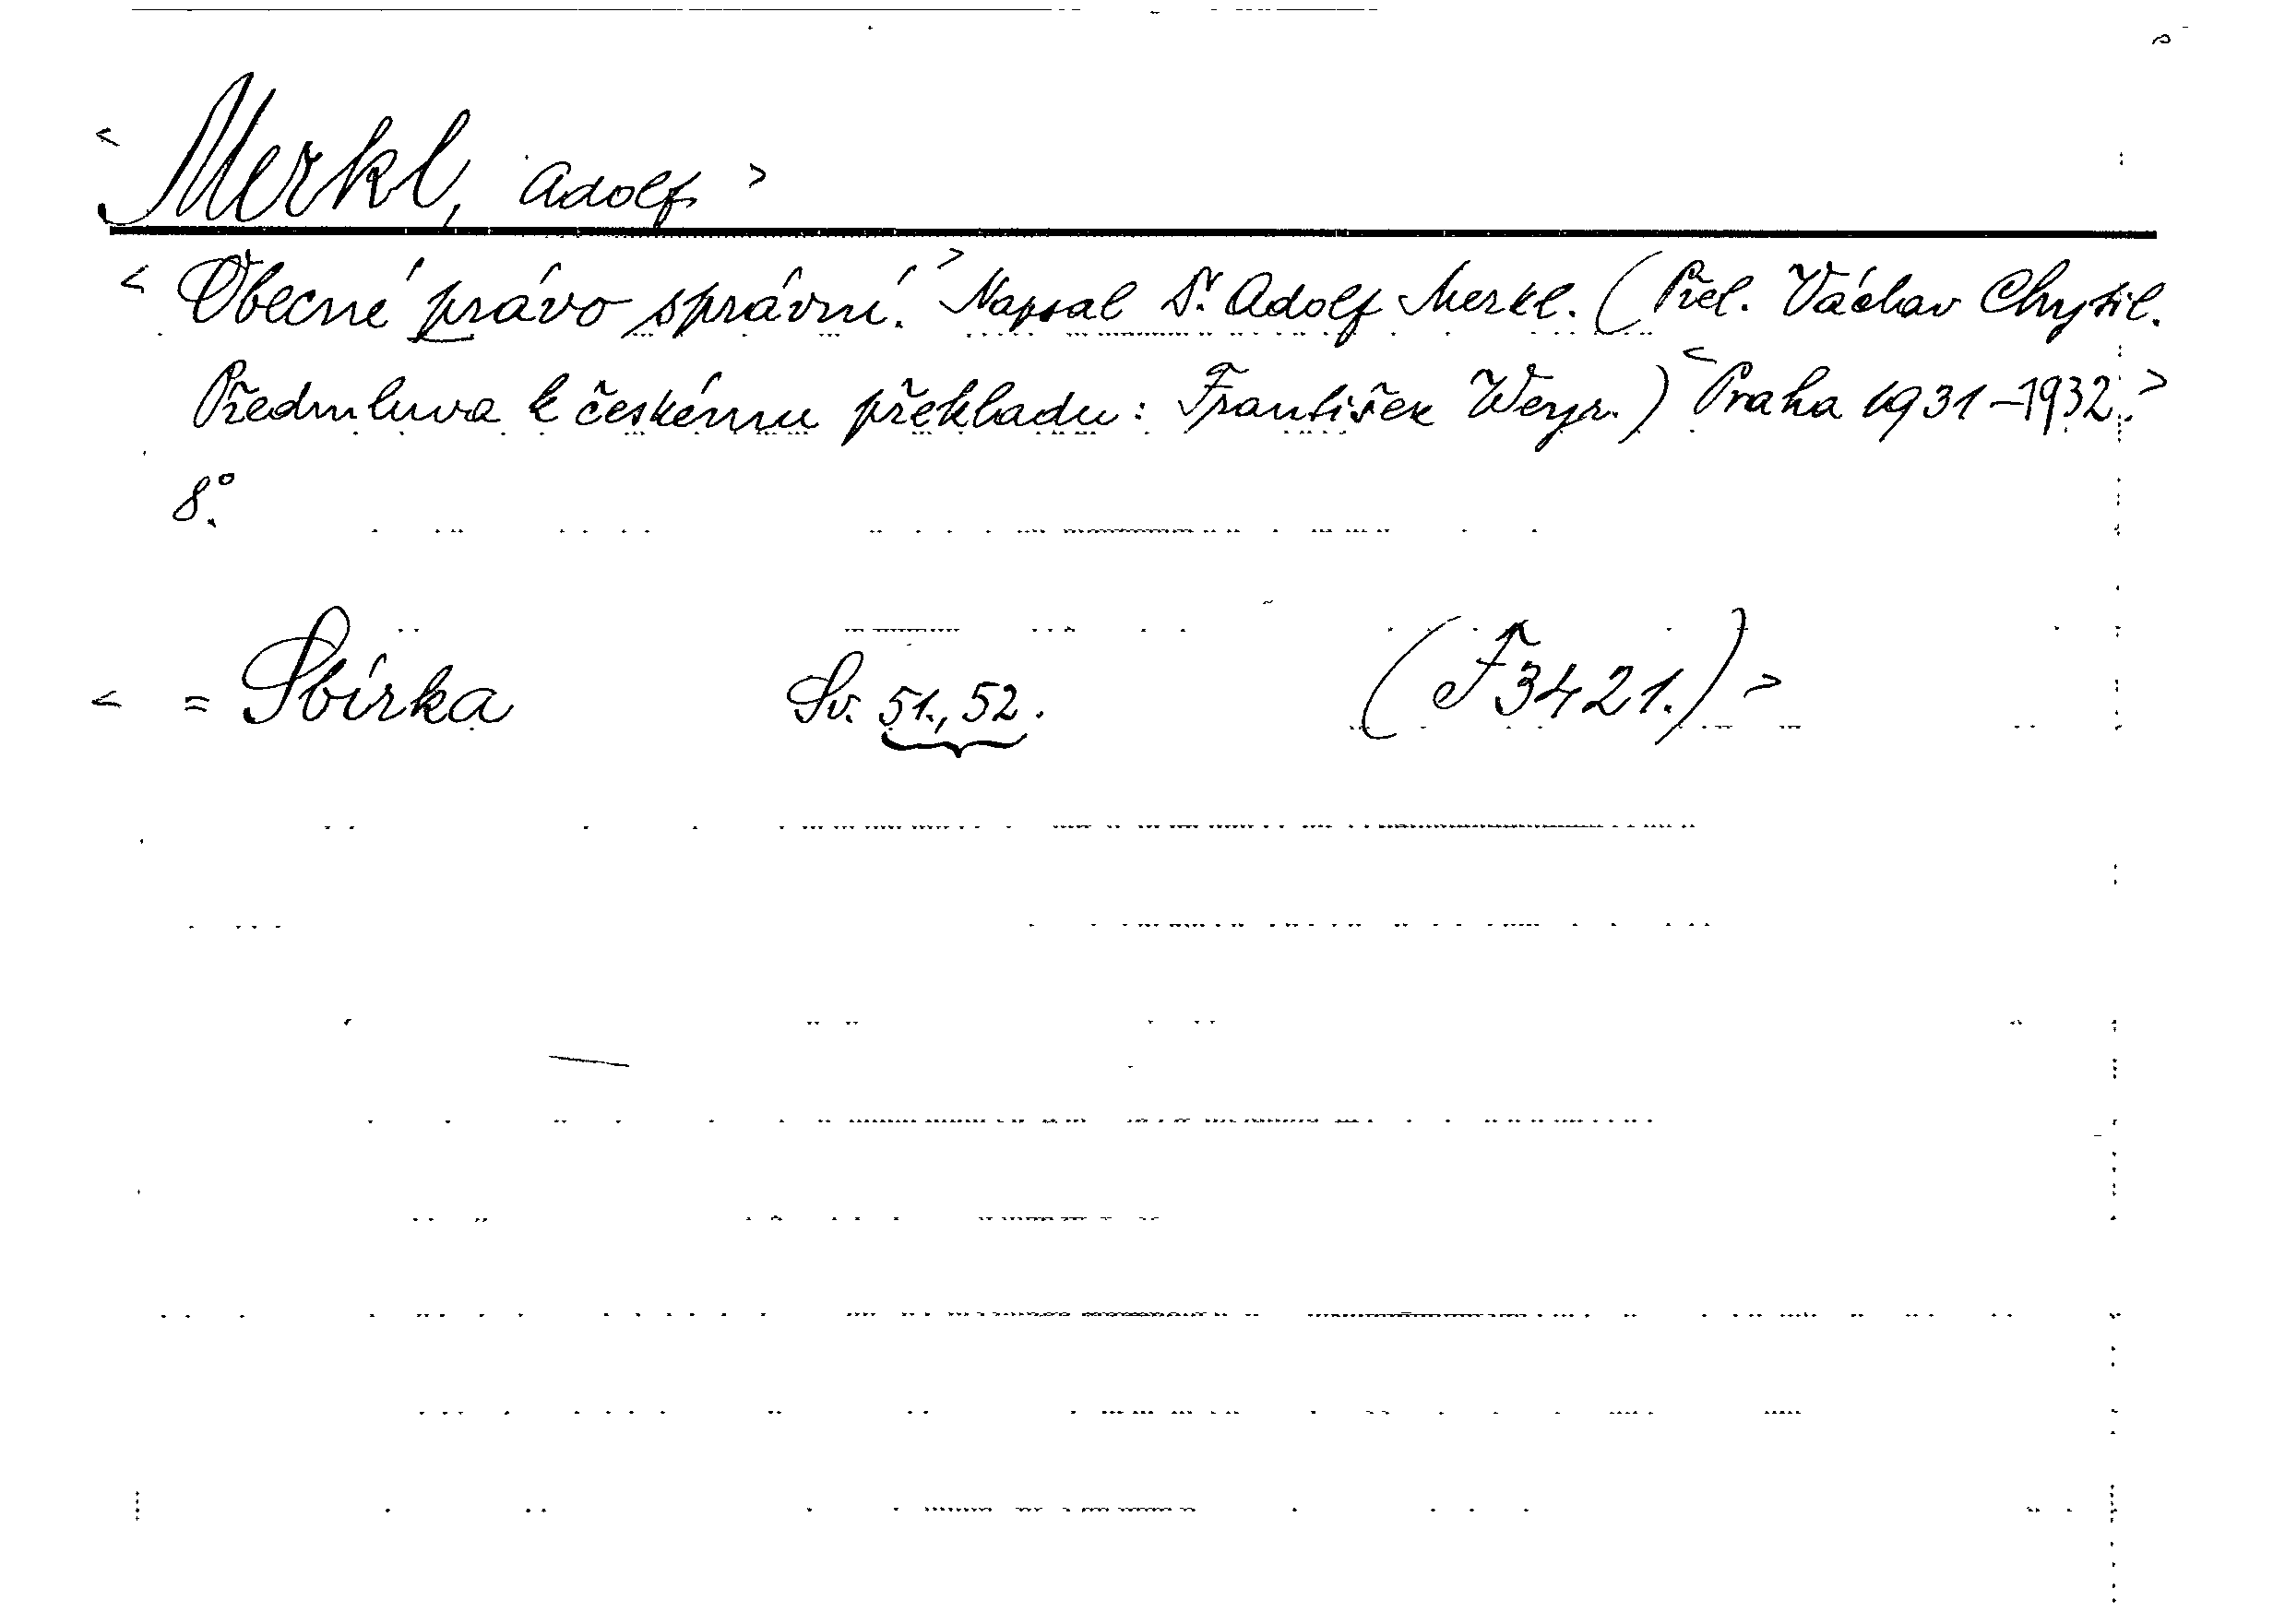 < Merkl, Adolf >
< Obecné právo správní. > Napsal Dr. Adolf Merkl. (Přel. Václav Chytil.
Předmluva k českému překladu: František Weyr.) < Praha 1931–1932. >
8°.
< = Sbírka Sv. 51., 52. (F 3421.) >